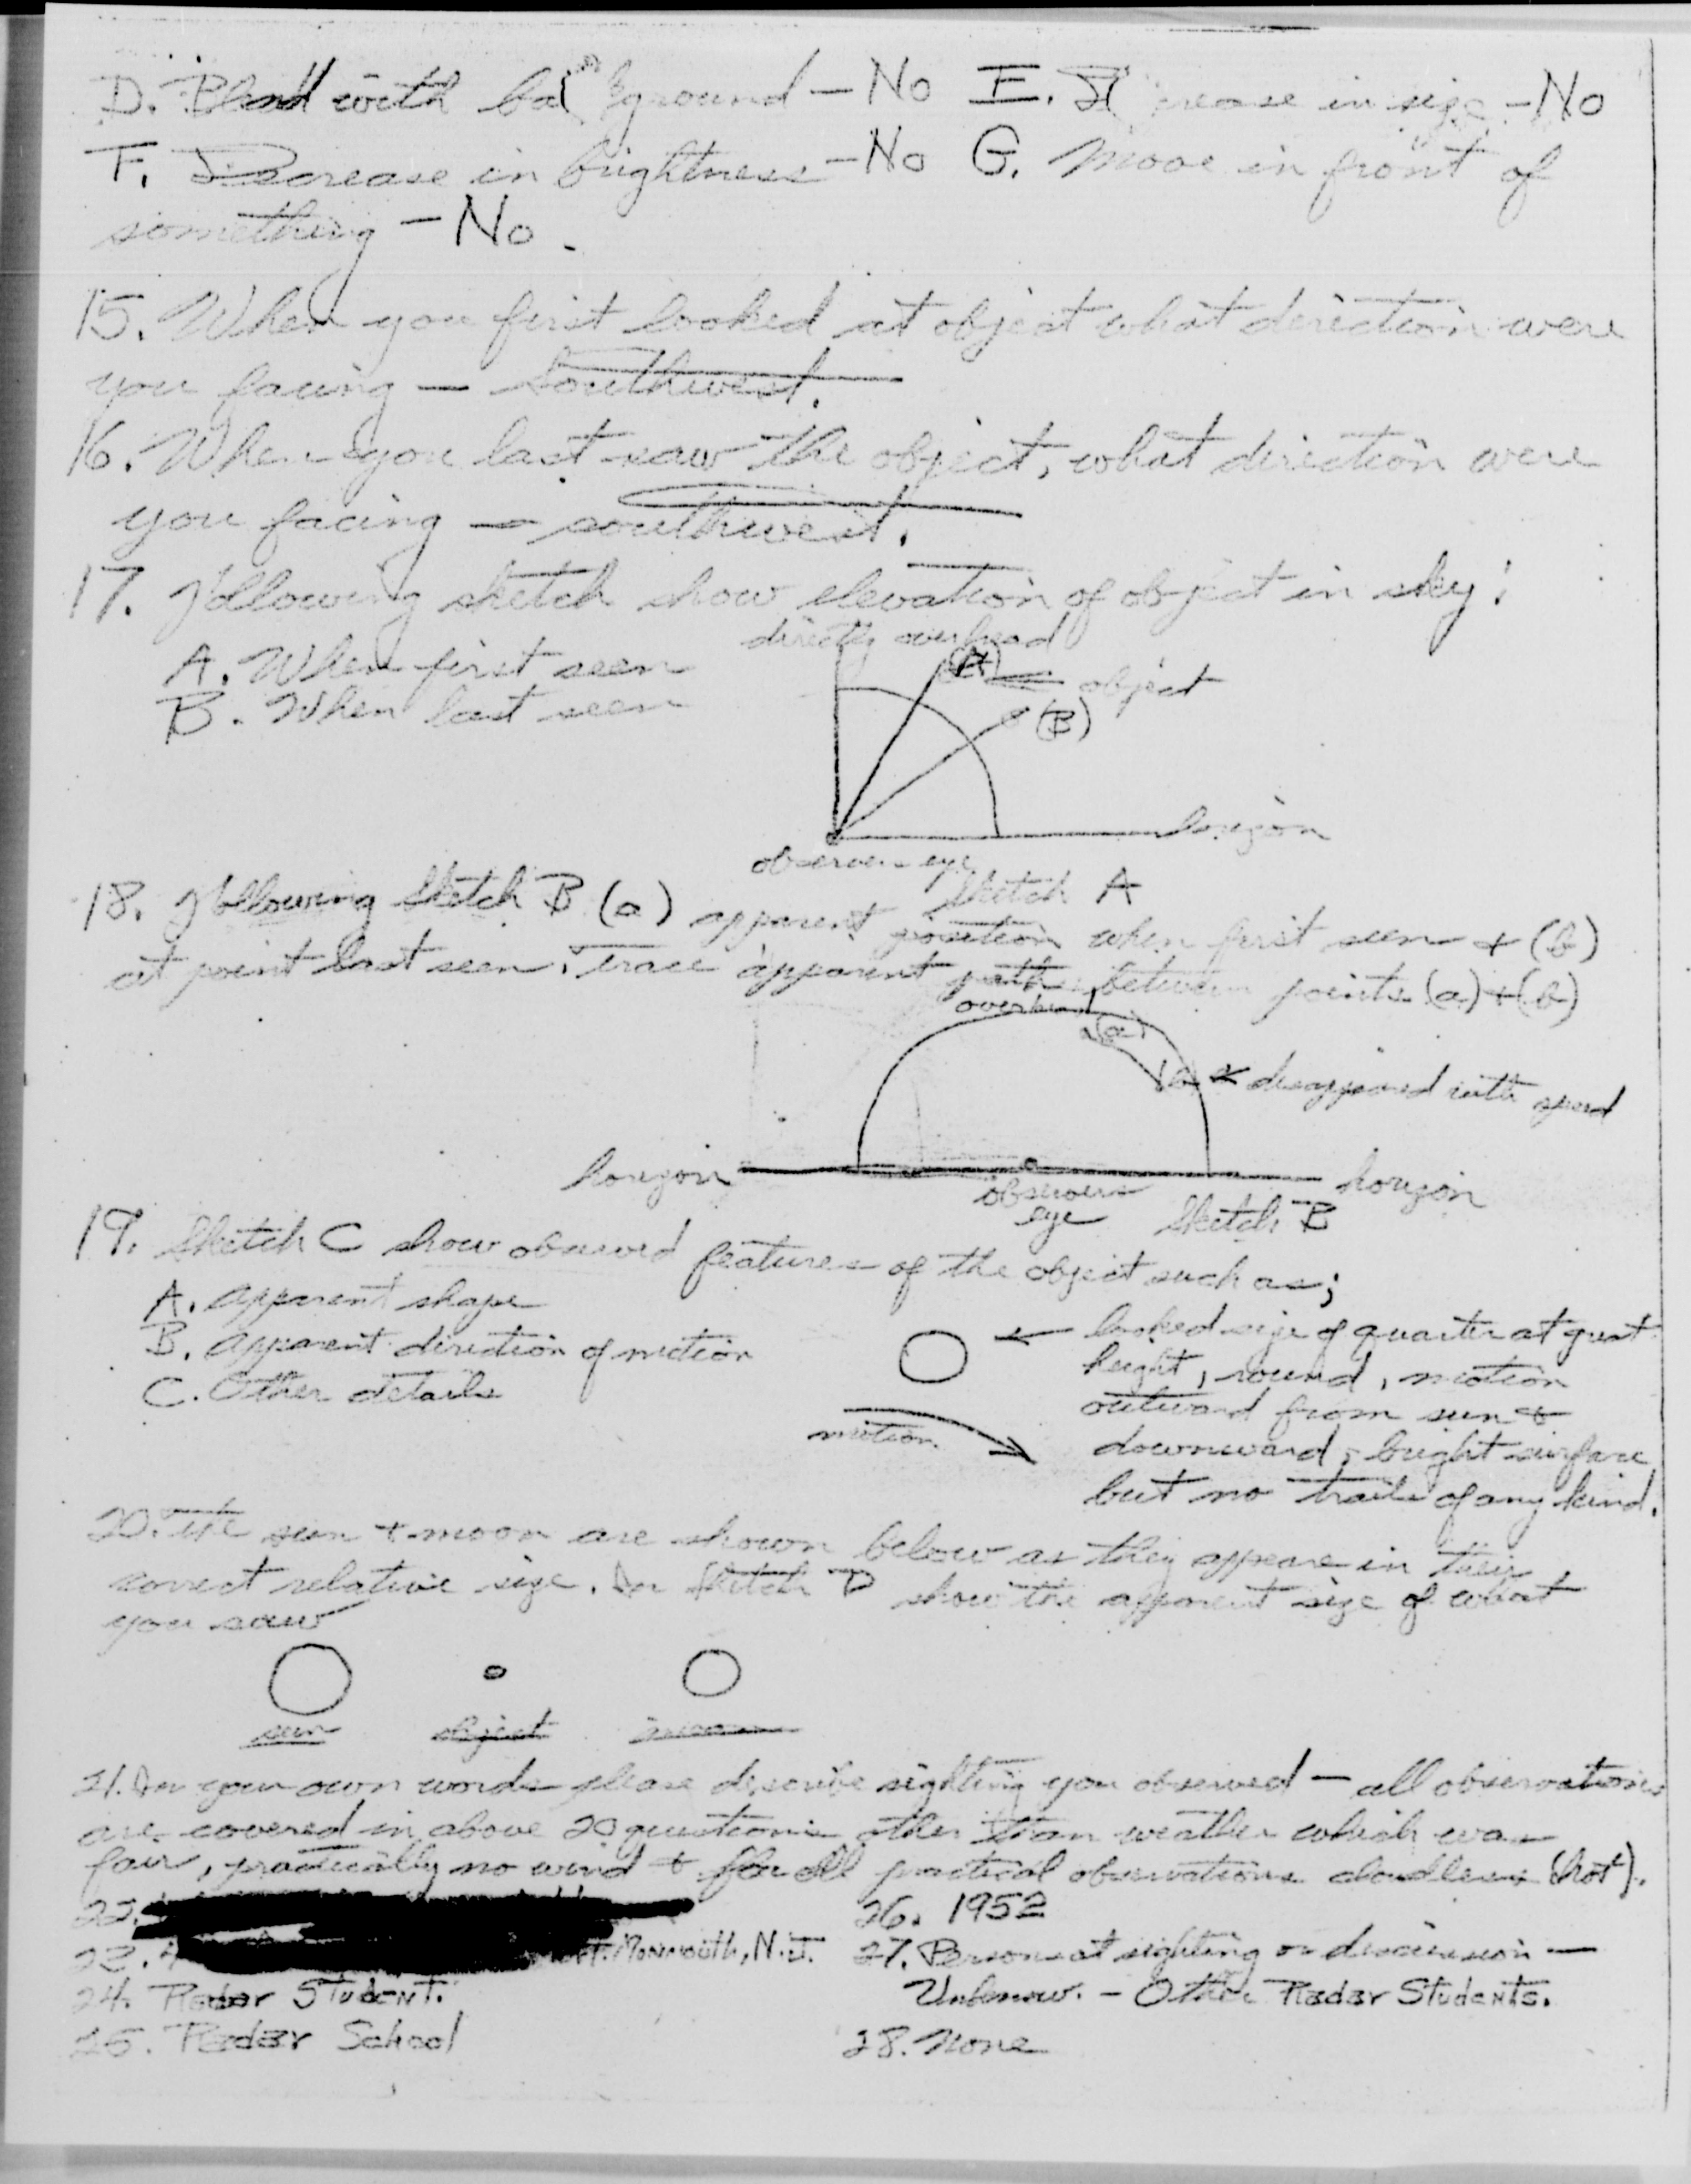 D. Blend with background - No E. Increase in size - No
F. Decrease in brightness - No G. Move in front of
something - No.
15. When you first looked at object what direction were
you facing - Southwest.
16. When you last saw the object, what direction were
you facing - southwest.
17. Following sketch show elevation of object in sky:
directly overhead
A. When first seen
B. When last seen
(A)
object
(B)
horizon
observers eye
Sketch A
18. Following Sketch B (a) apparent position when first seen + (b)
at point last seen. Trace apparent path between points (a) + (b)
overhead
(a)
disappeared with speed
horizon
observers
eye
horizon
Sketch B
19. Sketch C show observed features of the object such as;
A. Apparent shape
B. Apparent direction of motion
C. Other details
motion
looked size of quarter at great
height, round, motion
outward from sun +
downward, bright surface
but no trails of any kind.
20. The sun + moon are shown below as they appear in their
correct relative size. In Sketch D show the apparent size of what
you saw
sun
object
moon
21. In your own words please describe sighting you observed - all observations
are covered in above 20 questions other than weather which was
fair, practically no wind + for all practical observations cloudless (hot).
22.
23. Ft. Monmouth, N.J.
24. Radar Student.
25. Radar School
26. 1952
27. Persons at sighting or discussion -
Unknow. - Other Radar Students.
28. None